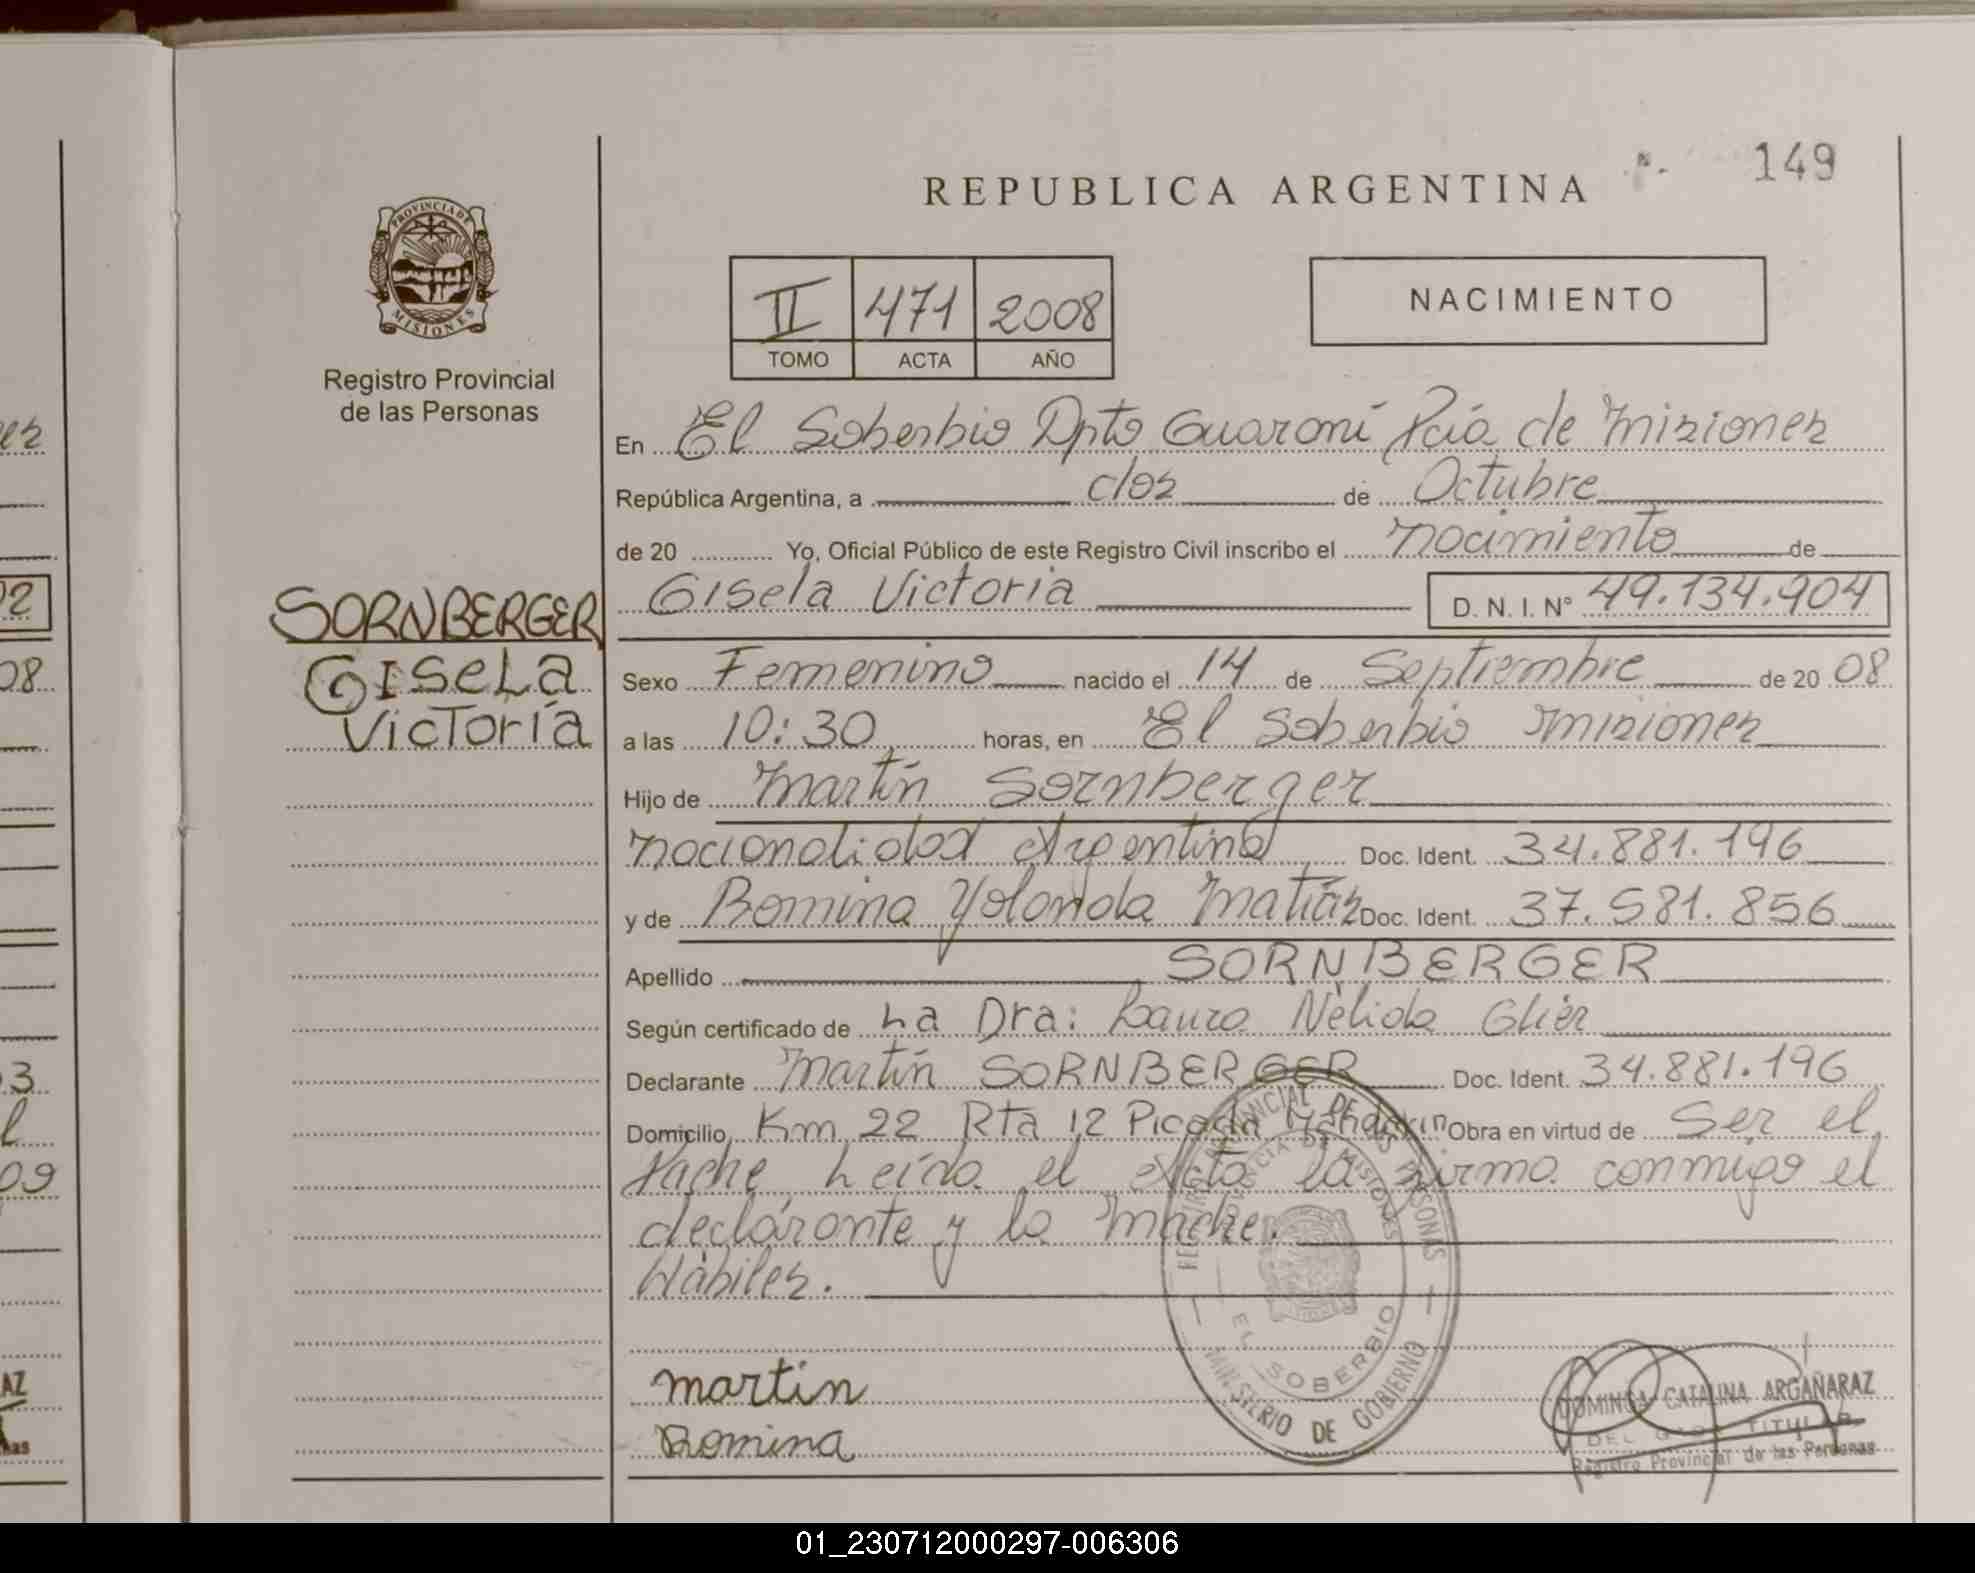 REPUBLICA ARGENTINA
149
PROVINCIA DE
MISIONES
Registro Provincial
de las Personas
II 471 2008
TOMO ACTA AÑO
NACIMIENTO
En El Soberbio Dpto Guaraní Pcia de Misiones
República Argentina, a dos de Octubre
de 20 Yo, Oficial Público de este Registro Civil inscribo el nacimiento de
Gisela Victoria D. N. I. N° 49.134.904
SORNBERGER
GISELA
VICTORIA
Sexo Femenino nacido el 14 de Septiembre de 20 08
a las 10:30 horas, en El Soberbio Misiones
Hijo de Martín Sornberger
nacionalidad Argentina Doc. Ident. 34.881.196
y de Romina Yolanda Matías Doc. Ident. 37.581.856
Apellido SORNBERGER
Según certificado de La Dra: Laura Nélida Glier
Declarante Martín SORNBERGER Doc. Ident. 34.881.196
Domicilio Km 22 Rta 12 Picada Obra en virtud de Ser el
Padre Leída el Acta la firma conmigo el
declarante y la Madre.
Hábiles.
martin
Romina
PROVINCIA DE MISIONES
EL SOBERBIO
MINISTERIO DE GOBIERNO
DOMINGA CATALINA ARGAÑARAZ
TITULAR
Registro Provincial de las Personas
01_230712000297-006306